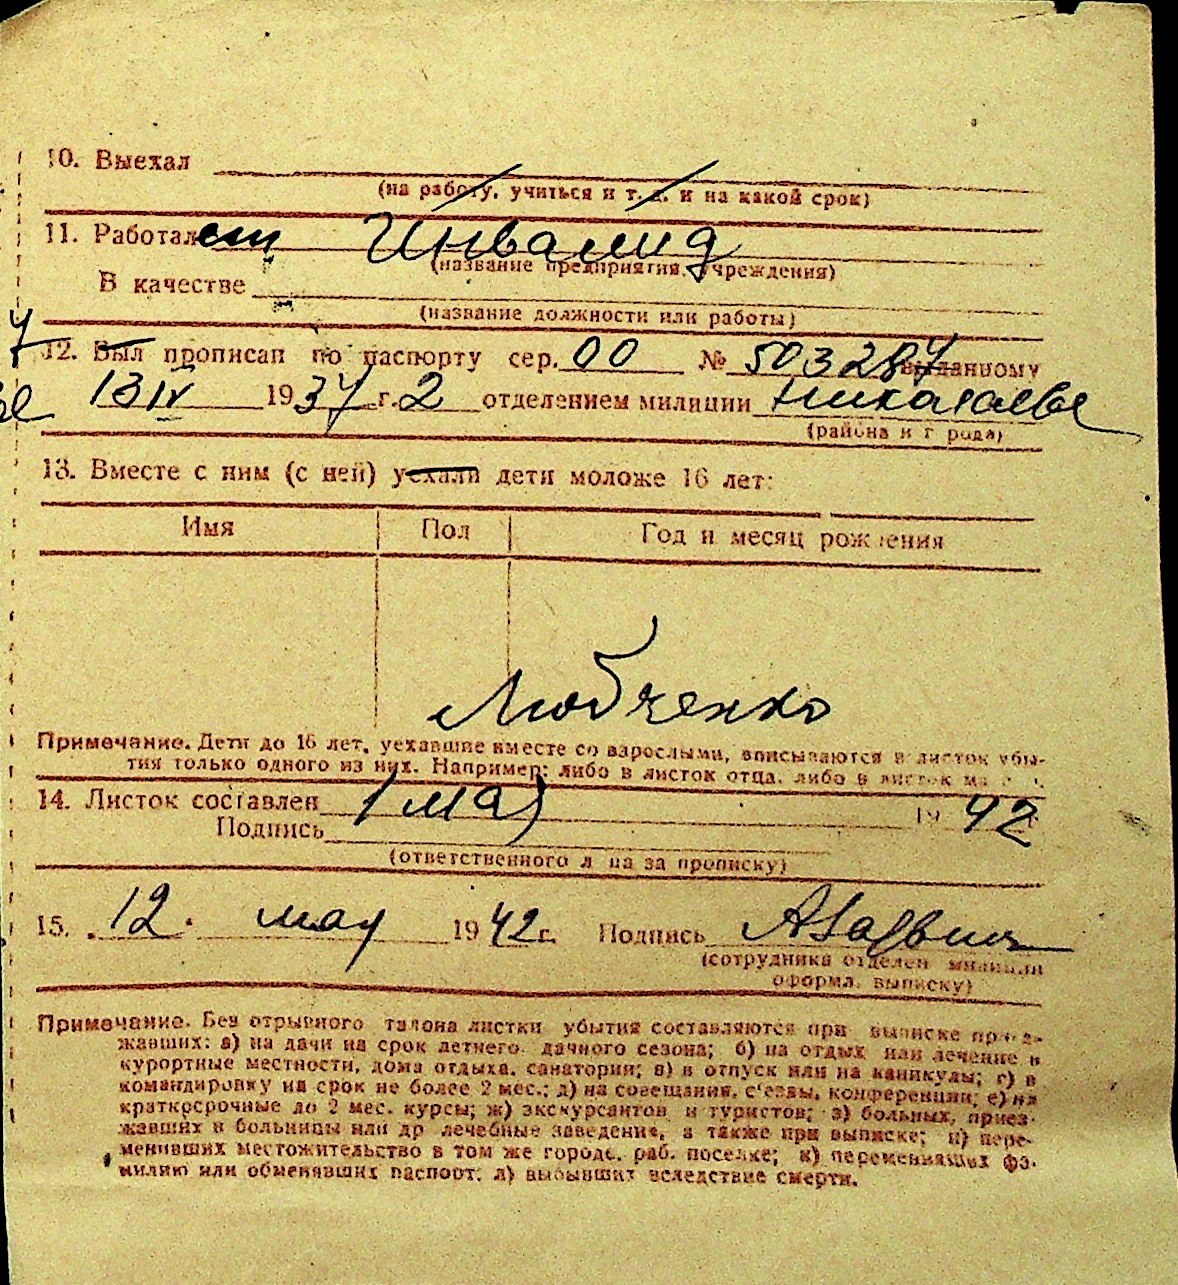 10. Выехал
(на работу, учиться и т. д. и на какой срок)
11. Работает Инвалид
(название предприятия, учреждения)
В качестве
(название должности или работы)
12. Был прописан по паспорту сер. 00 № 503287 выданному
13 IV 1937 г. 2 отделением милиции Николаева
(района и города)
13. Вместе с ним (с ней) уехали дети моложе 16 лет:
Имя Пол Год и месяц рождения
Любченко
Примечание. Дети до 16 лет, уехавшие вместе со взрослыми, вписываются в листок убы-
тия только одного из них. Например: либо в листок отца, либо в листок ма
14. Листок составлен 1 мая 1942
Подпись
(ответственного лица за прописку)
15. 12 мая 1942 г. Подпись
(сотрудника отделен. милиции
оформл. выписку)
Примечание. Без отрывного талона листки убытия составляются при выписке приез-
жавших: а) на дачи на срок летнего дачного сезона; б) на отдых или лечение в
курортные местности, дома отдыха, санатории; в) в отпуск или на каникулы; г) в
командировку на срок не более 2 мес.; д) на совещания, с'езды, конференции; е) на
краткосрочные до 2 мес. курсы; ж) экскурсантов и туристов; з) больных, приез-
жавших в больницы или др лечебные заведения, а также при выписке; и) пере-
менивших местожительство в том же городе, раб. поселке; к) переменивших фа-
милию или обменявших паспорт; л) выбывших вследствие смерти.